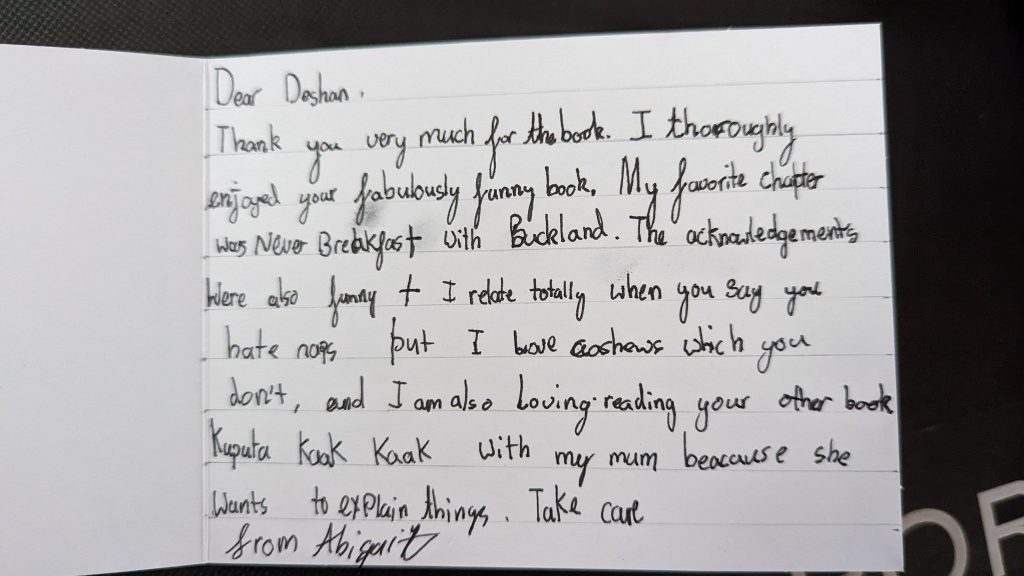 Dear Deshan.
Thank you very much for the book. I thoroughly
enjoyed your fabulously funny book. My favorite chapter
was Never Breakfast with Buckland. The acknowledgements
were also funny + I relate totally when you say you
hate naps but I love cashews which you
don't, and I am also Loving reading your other book
Kaputa Kaak Kaak with my mum beacause she
wants to explain things. Take care
from Abigail
OR